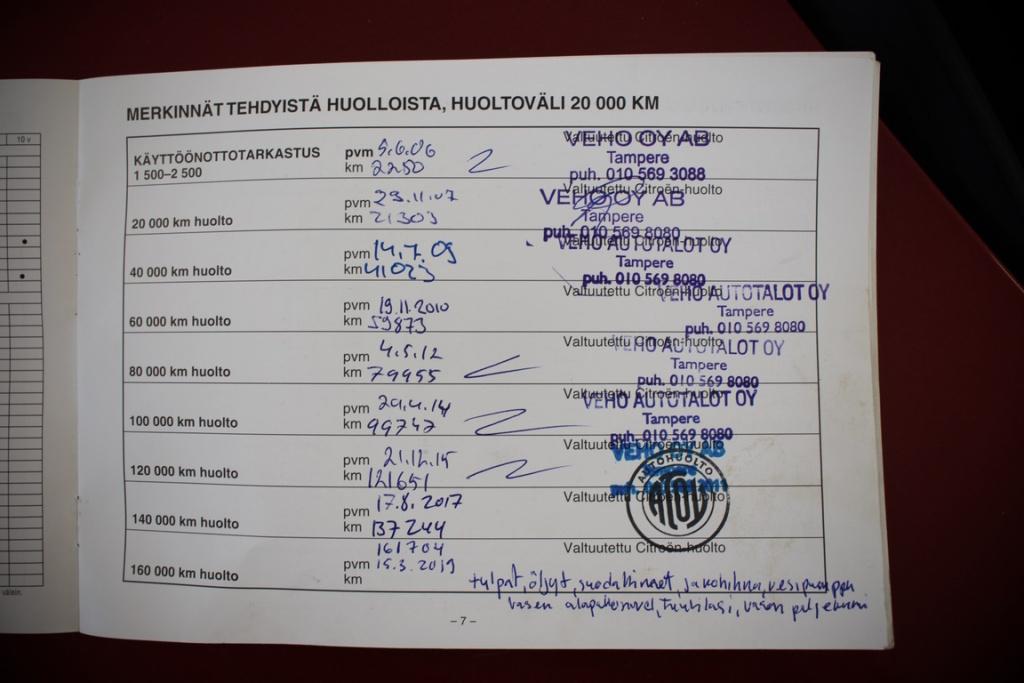 10 v
välein.
MERKINNÄT TEHDYISTÄ HUOLLOISTA, HUOLTOVÄLI 20 000 KM
KÄYTTÖÖNOTTOTARKASTUS
1 500–2 500
pvm 5.6.06
km 2250
Valtuutettu Citroën-huolto
VEHO OY AB
Tampere
puh. 010 569 3088
20 000 km huolto
pvm 23.11.07
km 21303
Valtuutettu Citroën-huolto
VEHO OY AB
Tampere
puh. 010 569 8080
40 000 km huolto
pvm 14.7.09
km 41023
Valtuutettu Citroën-huolto
VEHO AUTOTALOT OY
Tampere
puh. 010 569 8080
60 000 km huolto
pvm 19.11.2010
km 59873
Valtuutettu Citroën-huolto
VEHO AUTOTALOT OY
Tampere
puh. 010 569 8080
80 000 km huolto
pvm 4.5.12
km 79955
Valtuutettu Citroën-huolto
VEHO AUTOTALOT OY
Tampere
puh. 010 569 8080
100 000 km huolto
pvm 29.4.14
km 99747
Valtuutettu Citroën-huolto
VEHO AUTOTALOT OY
Tampere
puh. 010 569 8080
120 000 km huolto
pvm 21.12.15
km 121651
Valtuutettu Citroën-huolto
VEHO OY AB
140 000 km huolto
pvm 17.8.2017
km 137244
Valtuutettu Citroën-huolto
AUTOHUOLTO
ATOY
160 000 km huolto
161704
pvm 15.3.2019
km
Valtuutettu Citroën-huolto
tulpat, öljyt, suodattimet, jakohihna, vesipumppu
vasen alapallonivel, tuulilasi, vasen
– 7 –